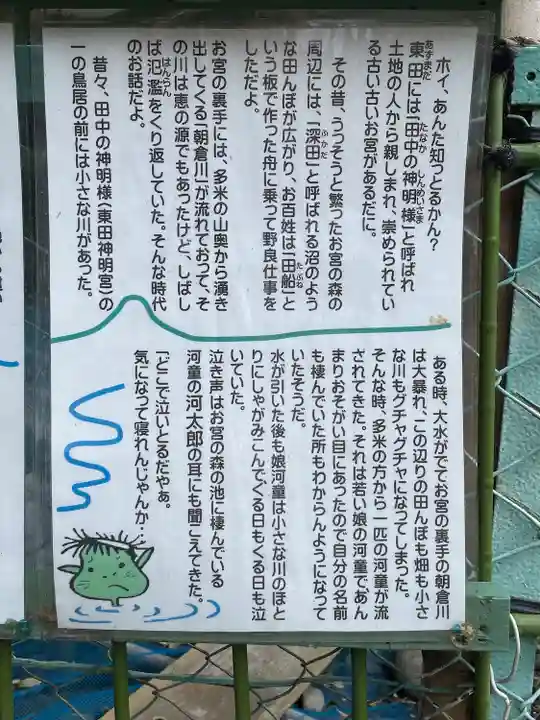 ホイ、あんた知っとるかん?
東田には「田中の神明様」と呼ばれ
土地の人から親しまれ、崇められてい
る古い古いお宮があるだに。
その昔、うっそうと繁ったお宮の森の
周辺には、「深田」と呼ばれる沼のよう
な田んぼが広がり、お百姓は「田船」と
いう板で作った舟に乗って野良仕事を
しただよ。
お宮の裏手には、多米の山奥から湧き
出してくる「朝倉川」が流れておって、そ
の川は恵の源でもあったけど、しばし
ば氾濫をくり返していた。そんな時代
のお話だよ。
昔々、田中の神明様(東田神明宮)の
一の鳥居の前には小さな川があった。
ある時、大水がでてお宮の裏手の朝倉川
は大暴れ、この辺りの田んぼも畑も小さ
な川もグチャグチャになってしまった。
そんな時、多米の方から一匹の河童が流
されてきた。それは若い娘の河童で、あん
まりおそがい目にあったので自分の名前
も棲んでいた所もわからんようになって
いたそうだ。
水が引いた後も娘河童は小さな川のほと
りにしゃがみこんで、くる日もくる日も泣
いていた。
泣き声はお宮の森の池に棲んでいる
河童の河太郎の耳にも聞こえてきた。
「どこで泣いとるだやぁ。
気になって寝れんじゃんか…